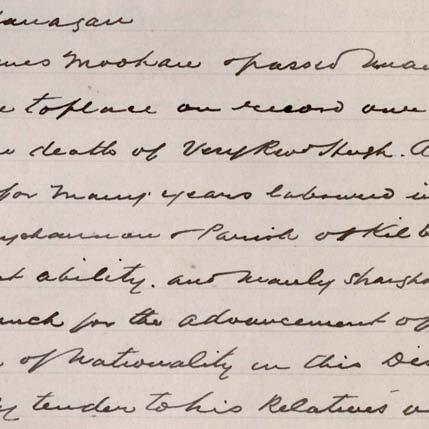 Flanagan
James Mookan & passed unan
to place on record our
death of Very Revd Hugh. A
for many years laboured i
& Parish of Kilb
ability. and manly straight
much for the advancement of
of Nationality in this Dis
tender to his Relatives